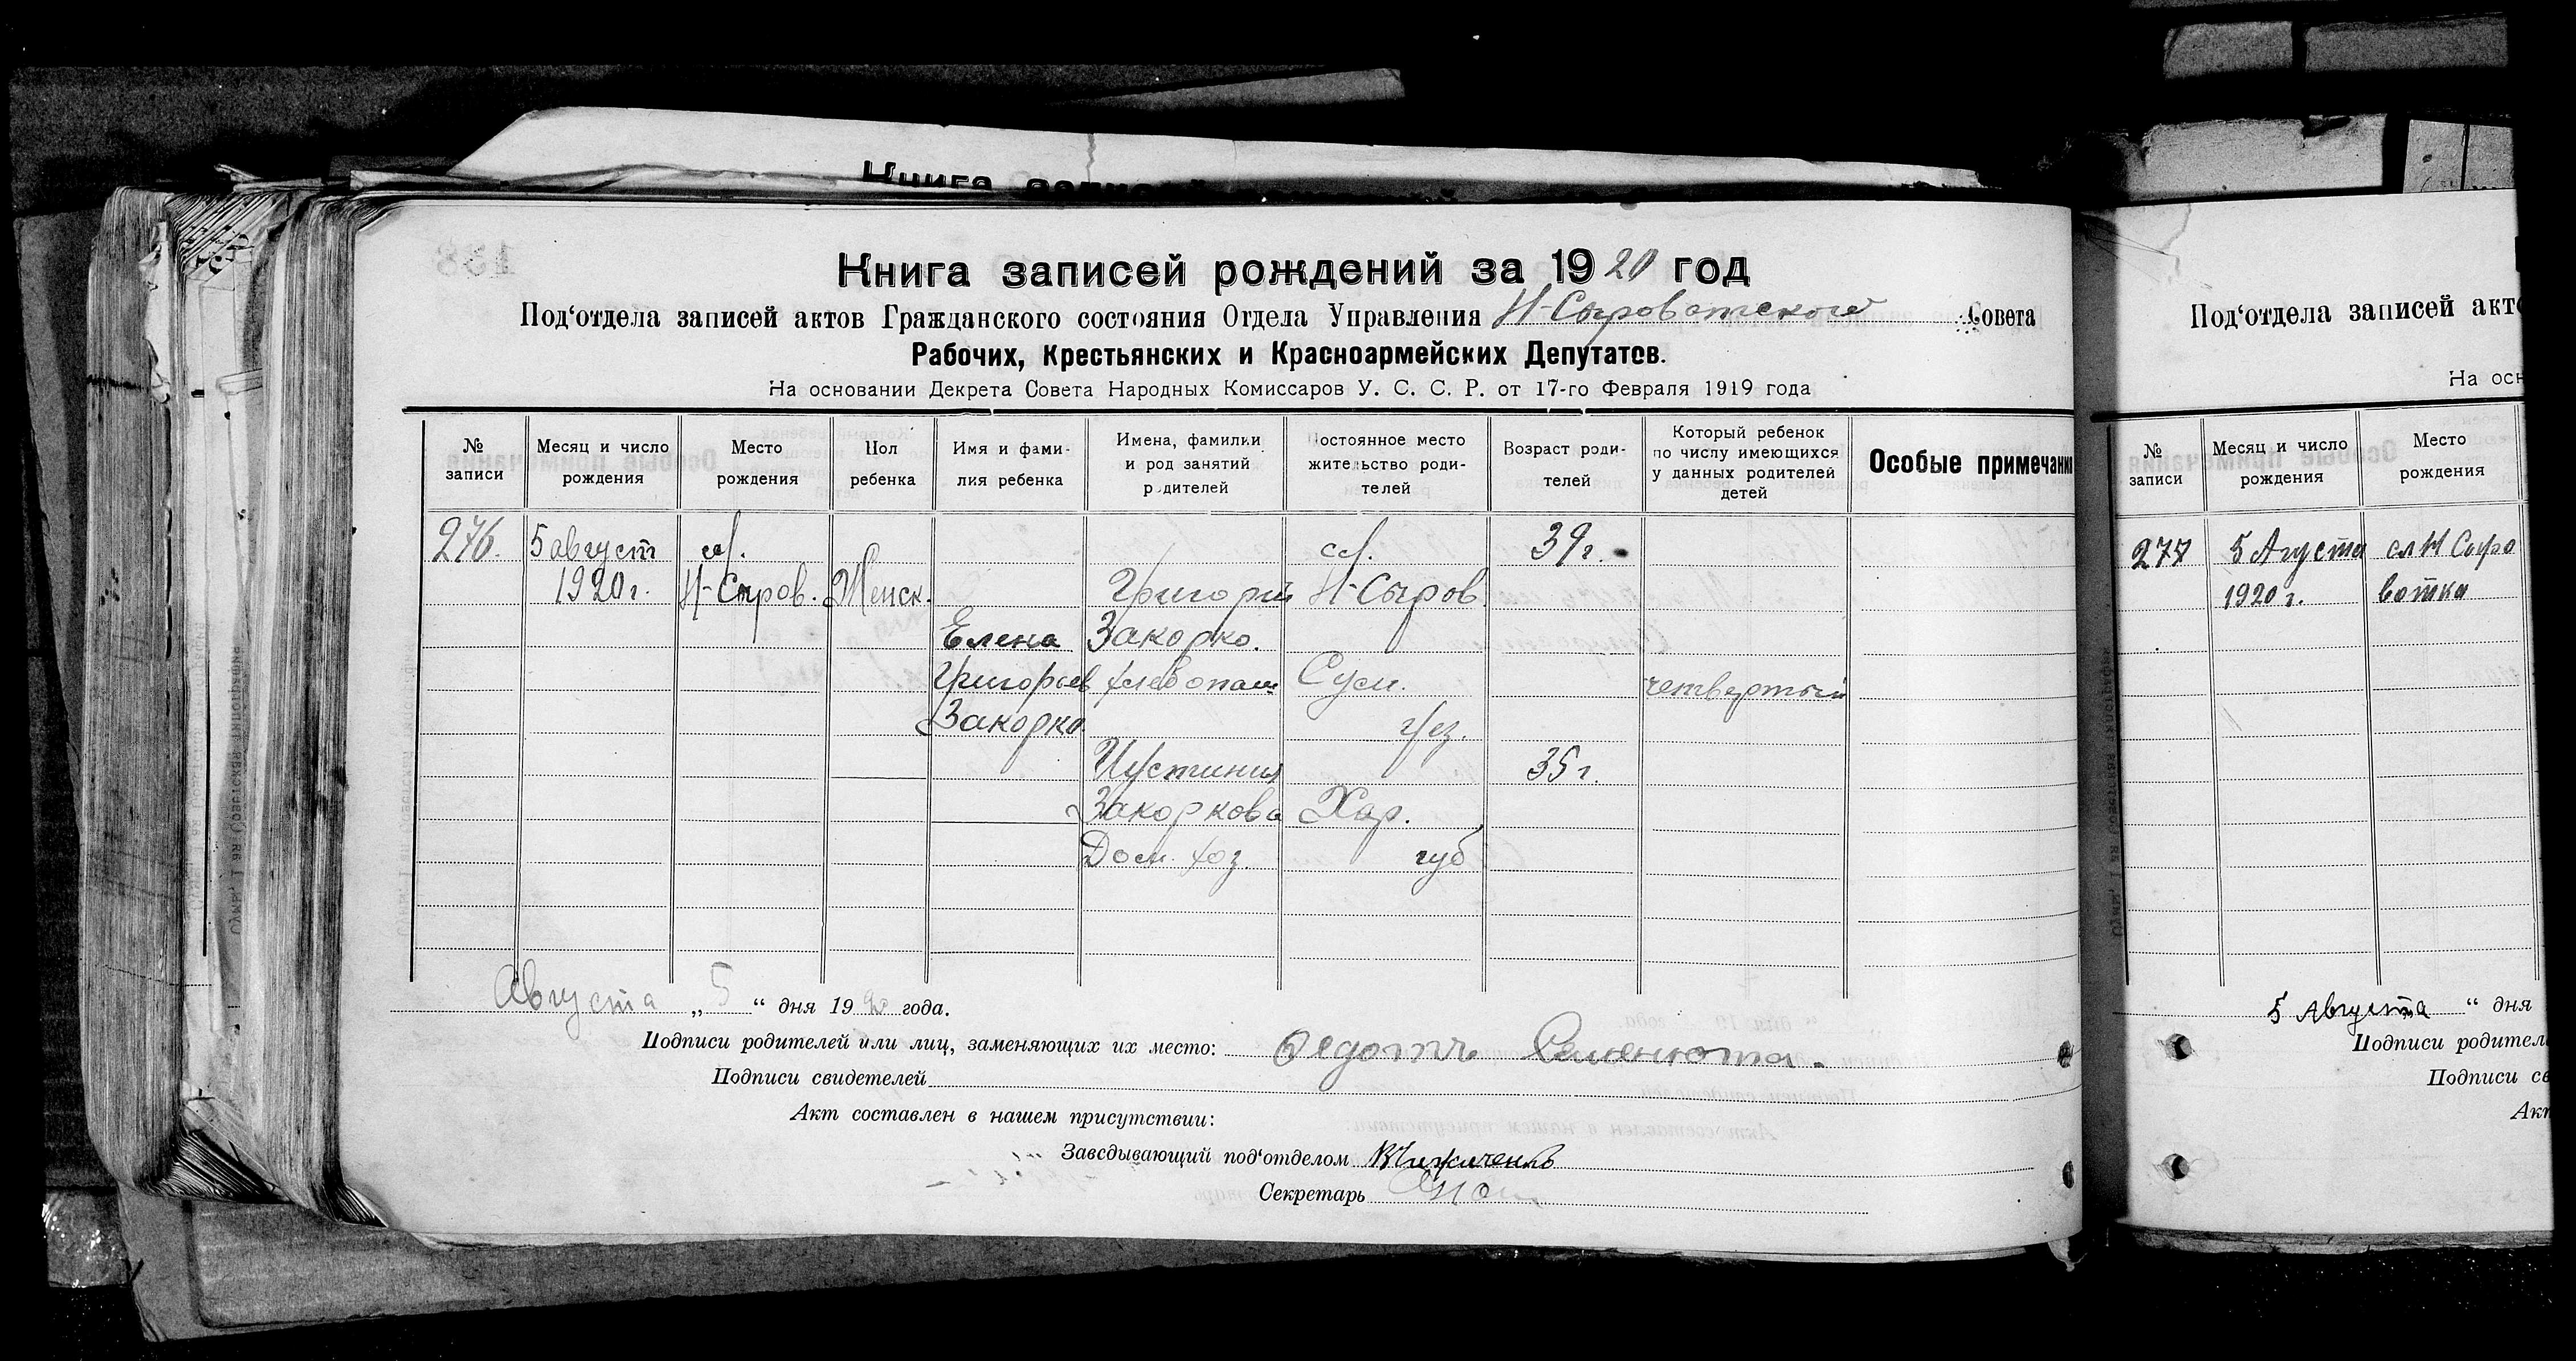 Книга записей
138
Книга записей рождений за 1920 год
Под'отдела записей актов Гражданского состояния Отдела Управления Н-Сыроватского Совета
Рабочих, Крестьянских и Красноармейских Депутатов.
На основании Декрета Совета Народных Комиссаров У. С. С. Р. от 17-го Февраля 1919 года
№ записи
Месяц и число рождения
Место рождения
Пол ребенка
Имя и фами-
лия ребенка
Имена, фамилии
и род занятий
родителей
Постоянное место
жительство роди-
телей
Возраст роди-
телей
Который ребенок
по числу имеющихся
у данных родителей
детей
Особые примечани
276.
5 август
1920 г.
сл.
Н-Сыров.
Женск.
Елена
Григорьев
Закорко.
Григорий
Закорко.
хлебопаш
Иустиния
Закоркова
Дом. хоз.
сл.
Н-Сыров.
Сум.
уез.
Хар.
губ
39 г.
35 г.
четвертый
Августа „ 5 “ дня 1920 года.
Подписи родителей или лиц, заменяющих их место: Федотъ Семенюта.
Подписи свидетелей
Акт составлен в нашем присутствии:
Заведывающий под'отделом
Секретарь
Под'отдела записей акто
На осн
№ записи
Месяц и число рождения
Место рождения
277
5 Агуста
1920 г.
сл Н Сыро
ватка
5 Августа “ дня
Подписи родител
Подписи св
Акт